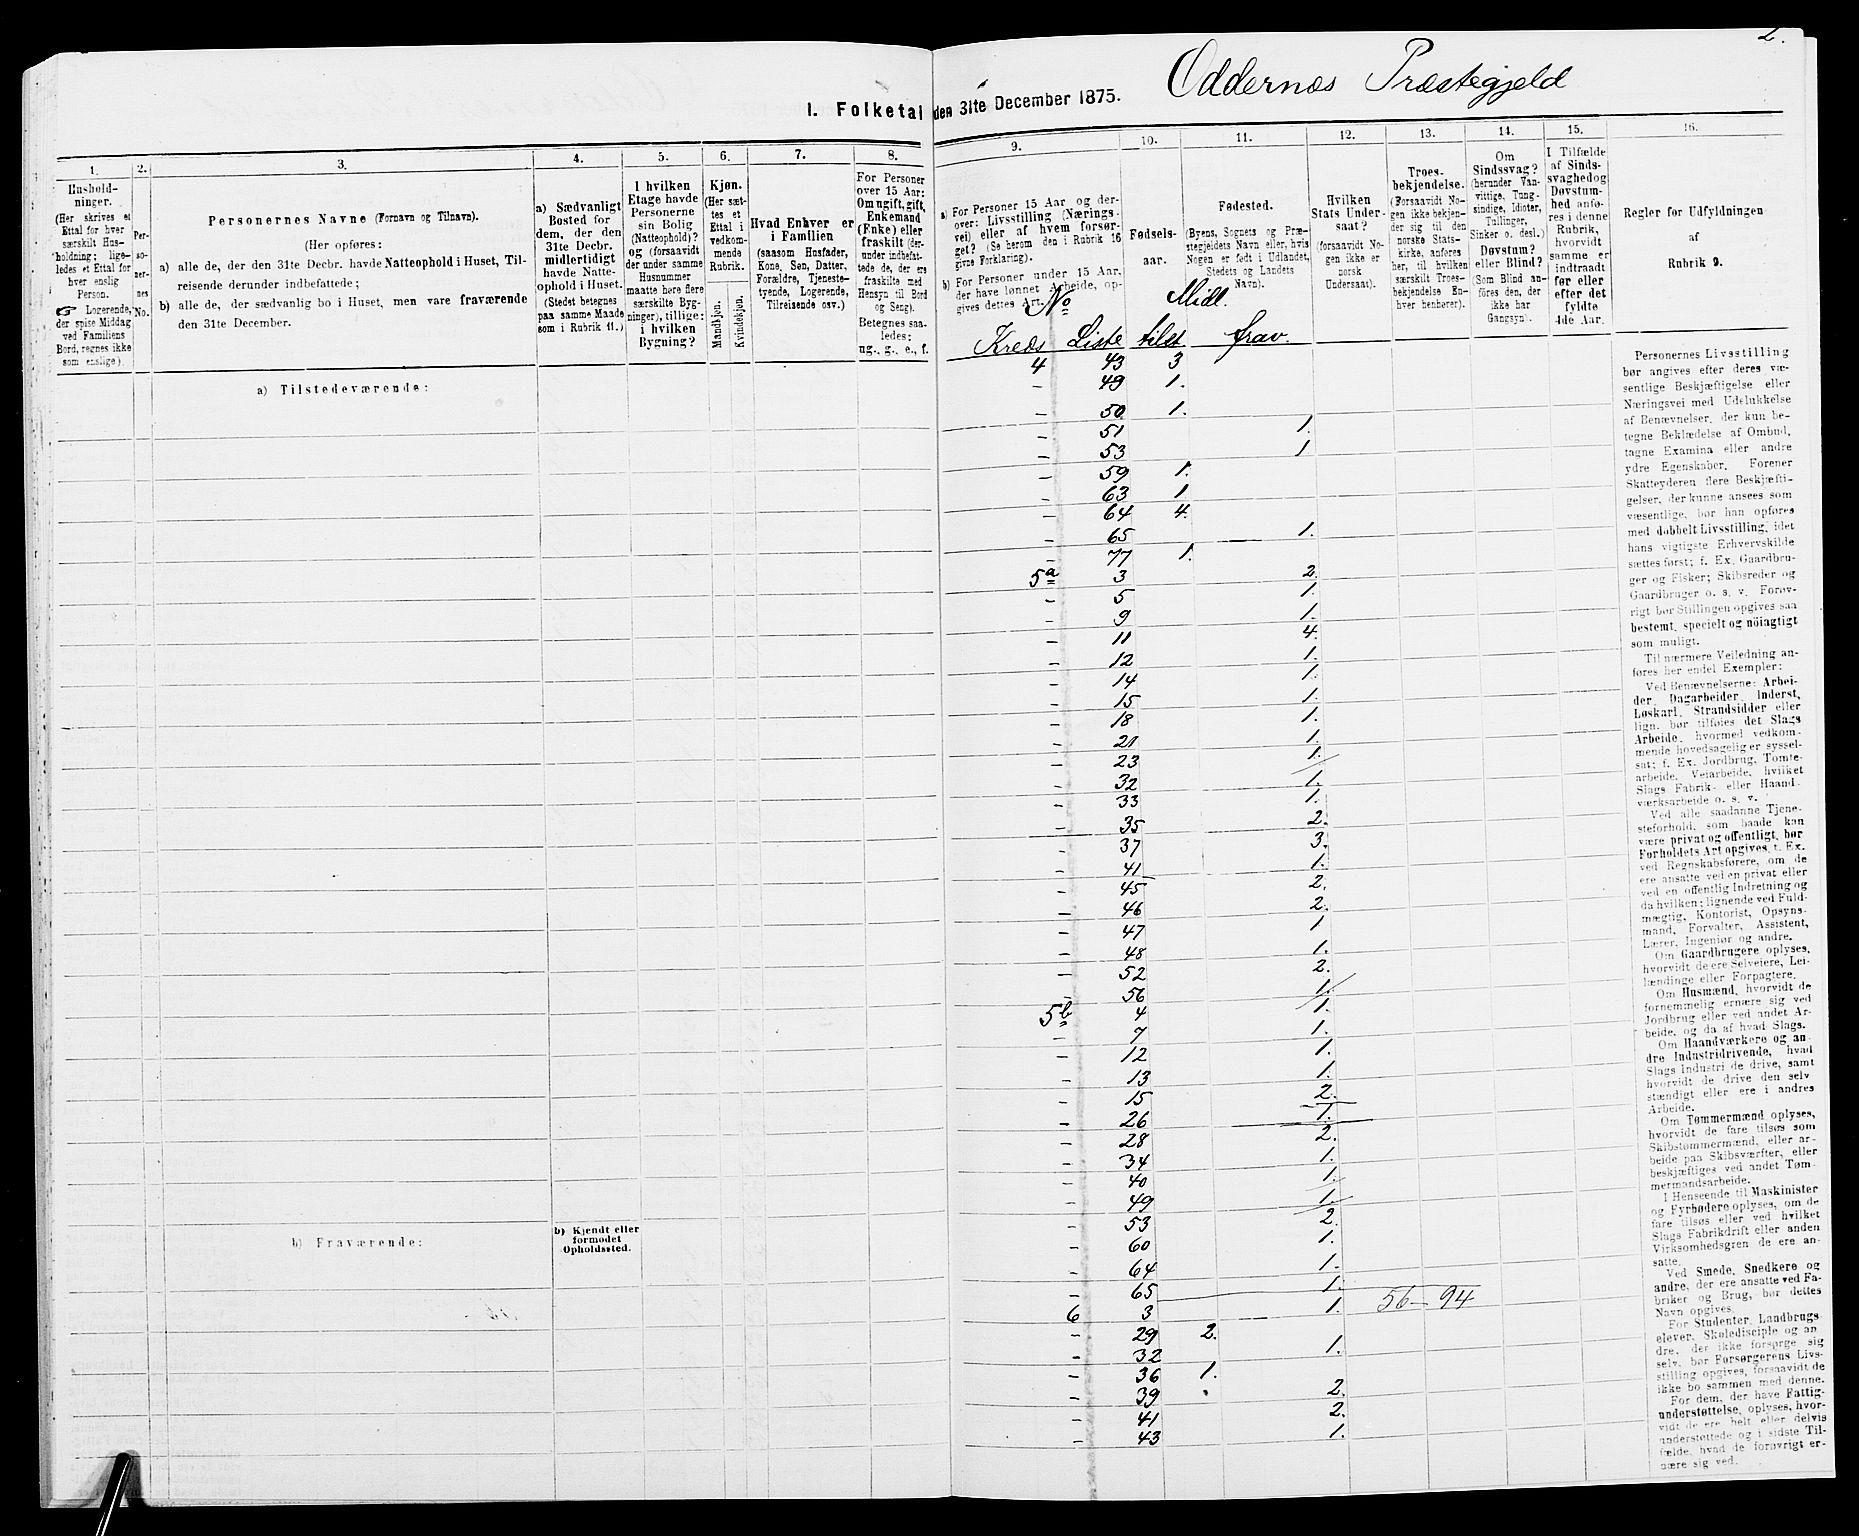 2.
Oddernes Præstegjeld
I. Folketal den 31te December 1875.
1.
Husholdninger.
(Her skrives et
Ettal for hver
særskilt Husholdning; ligeledes et Ettal for
hver enslig
Person.
☞ Logerende,
der spise Middag
ved Familiens
Bord, regnes ikke
som enslige).
2.
Personernes
No.
3.
Personernes Navne (Fornavn og Tilnavn).
(Her opføres:
a) alle de, der den 31te Decbr. havde Natteophold i Huset, Tilreisende derunder indbefattede;
b) alle de, der sædvanlig bo i Huset, men vare fraværende
den 31te December.
4.
a) Sædvanligt
Bosted for
dem, der den
31te Decbr.
midlertidigt
havde Natteophold i Huset.
(Stedet betegnes
paa samme Maade
som i Rubrik 11.)
5.
I hvilken
Etage havde
Personerne
sin Bolig
(Natteophold)?
og (forsaavidt
der under samme
Husnummer
maatte høre flere
særskilte Bygninger), tillige:
i hvilken
Bygning?
6.
Kjøn.
(Her sættes et
Ettal i
vedkommende
Rubrik.
Mandkjøn.
Kvindekjøn.
7.
Hvad Enhver er
i Familien
(saasom Husfader,
Kone, Søn, Datter,
Forældre, Tjenestetyende, Logerende,
Tilreisende osv.)
8.
For Personer
over 15 Aar:
Om ugift, gift,
Enkemand
(Enke) eller
fraskilt (derunder indbefattede de, der ere
fraskilte med
Hensyn til Bord
og Seng).
Betegnes saaledes:
ug., g., e., f.
9.
a) For Personer 15 Aar og derover: Livsstilling (Næringsvei) eller af hvem forsørget? (Se herom den i Rubrik 16
givne Forklaring).
b) For Personer under 15 Aar,
der have lønnet Arbeide, opgives dettes Art.
10.
Fødselsaar.
11.
Fødested.
(Byens, Sognets og Præstegjeldets Navn eller, hvis
Nogen er født i Udlandet,
Stedets og Landets
Navn).
12.
Hvilken
Stats Undersaat?
(forsaavidt Nogen ikke er
norsk
Undersaat).
13.
Troesbekjendelse.
(Forsaavidt Nogen ikke bekjender sig til den
norske Statskirke, anføres
her, til hvilken
særskilt Troesbekjendelse Enhver henhører).
14.
Om
Sindssvag?
(herunder Vanvittige, Tungsindige, Idioter,
Tullinger,
Sinker o. desl.)
Døvstum?
eller Blind?
(Som Blind anføres den, der
ikke har
Gangsyn).
15.
I Tilfælde
af Sindssvaghed og
Døvstumhed anføres i denne
Rubrik,
hvorvidt
samme er
indtraadt
før eller
efter det
fyldte
4de Aar.
16.
Regler for Udfyldningen
af
Rubrik 9.
No Midl.
Kreds Liste tilst frav.
a) Tilstedeværende:
4 43 3
– 49 1.
– 50 1.
– 51 1.
– 53 1
– 59 1.
– 63 1
– 64 4.
– 65 1.
– 77 1.
5a 3 2.
– 5 1.
– 9 1.
– 11 4.
– 12 1.
– 14 1.
– 15 1.
– 18 1.
– 21 1.
– 23 1.
– 32 1.
– 33 1.
– 35 2.
– 37 3.
– 41 1.
– 45 2.
– 46 2.
– 47 1
– 48 1.
– 52 2.
– 56 1.
5b 4 1.
– 7 1.
– 12 1.
– 13 1.
– 15 2.
– 26 1.
– 28 2.
– 34 1.
– 40 1.
– 49 1.
– 53 2.
– 60 1.
– 64 1.
– 65 1.
6 3 1. 56–94
– 29 2.
– 32 1.
– 36 1.
– 39 2.
– 41 2.
– 43 1.
b) Fraværende:
b) Kjendt eller
formodet
Opholdssted.
Personernes Livsstilling
bør angives efter deres væsentlige Beskjæftigelse eller
Næringsvei med Udelukkelse
af Benævnelser, der kun betegne Beklædelse af Ombud,
tagne Examina eller andre
ydre Egenskaber. Forener
Skatteyderen flere Beskjæftigelser, der kunne ansees som
væsentlige, bør han opføres
med dobbelt Livsstilling, idet
hans vigtigste Erhvervskilde
sættes først; f. Ex. Gaardbruger og Fisker; Skibsreder og
Gaardbruger o. s. v. Forøvrigt bør Stillingen opgives saa
bestemt, specielt og nöiagtigt
som muligt.
Til nærmere Veiledning anføres her endel Exempler:
Ved Benævnelserne: Arbeider, Dagarbeider, Inderst,
Løskarl, Strandsidder eller
lign. bør tilføies det Slags
Arbeide, hvormed vedkommende hovedsagelig er sysselsat; f. Ex. Jordbrug, Tomtearbeide, Veiarbeide, hvilket
Slags Fabrik- eller Haandværksarbeide o. s. v.
Ved alle saadanne Tjenesteforhold, som baade kan
være privat og offentligt, bør
Forholdets Art opgives, t. Ex.
ved Regnskabsførere, om de
ere ansatte ved en privat eller
ved en offentlig Indretning og
da hvilken; lignende ved Fuldmægtig, Kontorist, Opsynsmand, Forvalter, Assistent,
Lærer, Ingeniør og andre.
Om Gaardbrugere oplyses,
hvorvidt de ere Selveiere, Leilændinge eller Forpagtere.
Om Husmænd, hvorvidt de
fornemmelig ernære sig ved
Jordbrug eller ved andet Arbeide, og da af hvad Slags.
Om Haandværkere og andre Industridrivende, hvad
Slags Industri de drive, samt
hvorvidt de drive den selvstændigt eller ere i andres
Arbeide.
Om Tømmermænd oplyses,
hvorvidt de fare tilsøs som
Skibstømmermænd, eller arbeide paa Skibsværfter, eller
beskjæftiges ved andet Tømmermandsarbeide.
I Henseende til Maskinister
og Fyrbødere oplyses, om de
fare tilsøs eller ved hvilket
Slags Fabrikdrift eller anden
Virksomhedsgren de ere ansatte.
Ved Smede, Snedkere og
andre, der ere ansatte ved Fabriker og Brug, bør dettes
Navn opgives.
For Studenter, Landbrugselever, Skoledisciple og andre, der ikke forsørge sig
selv, bør Forsørgerens Livsstilling opgives, forsaavidt de
ikke bo sammen med denne.
For dem, der have Fattigunderstøttelse, oplyses, hvorvidt de ere helt eller delvis
understøttede og i sidste Tilfælde, hvad de forøvrigt ernære sig ved.